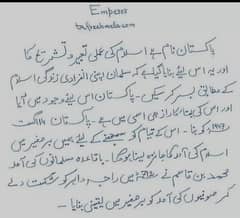 Emperor
پاکستان نام ہے اسلام کی عملی تعبیر و تشریح کا
اور یہ اس لیے بنایا گیا ہے کہ مسلمان اپنی انفرادی زندگی اسلام
کے مطابق بسر کر سکیں۔ پاکستان اس لیے وجود میں آیا
اور اس کی بنیاد کا راز ہی اسی میں ہے۔ پاکستان ۱۴ اگست
۱۹۴۷ء کو بنا۔ اس کے قیام کو سمجھنے کے لیے ہمیں برصغیر میں
اسلام کی آمد کا جائزہ لینا ہوگا۔ باقاعدہ مسلمانوں کی آمد
محمد بن قاسم نے میں راجہ داہر کو شکست دے
کر مسلمانوں کی آمد کو برصغیر میں یقینی بنایا۔